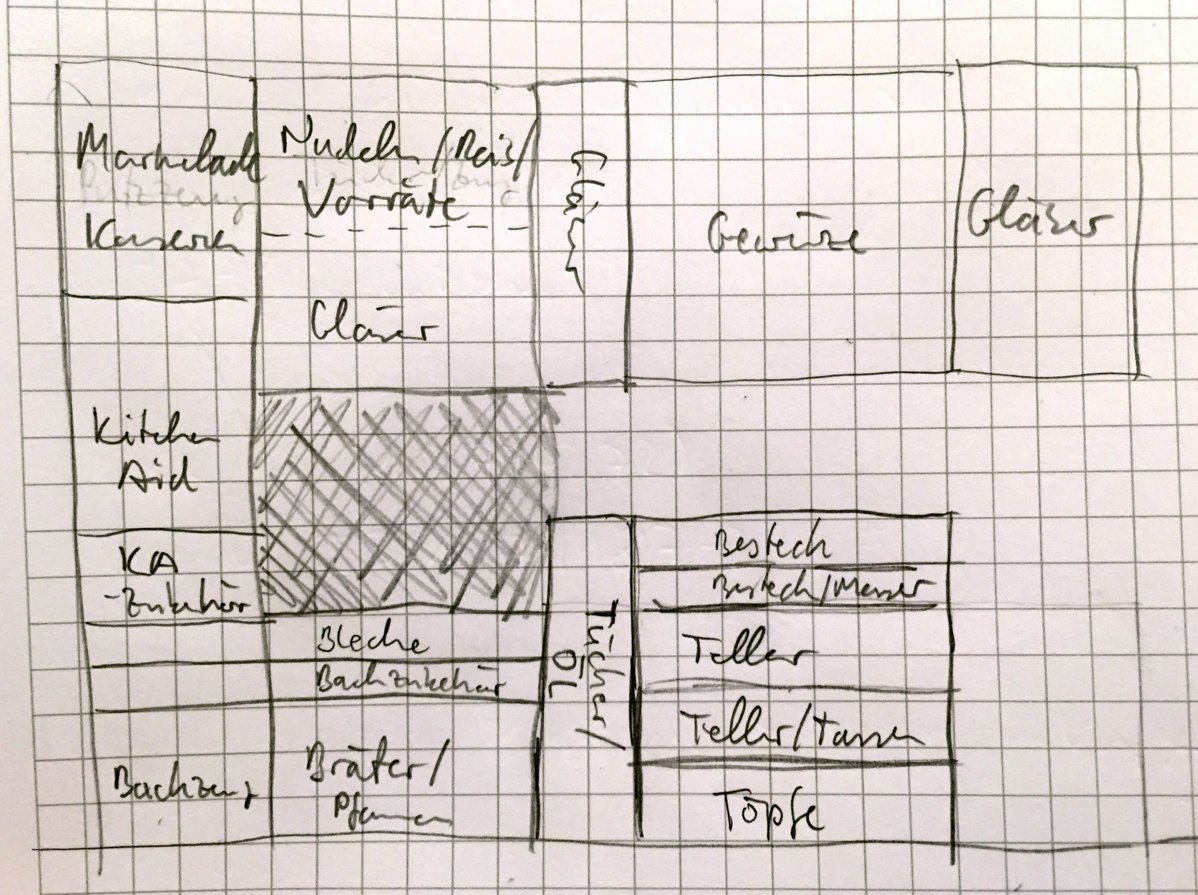 Marmelade
Putzzeug
Konserven
Nudeln/Reis/
Vorräte
Gläser
Gläser
Gewürze
Gläser
Kitchen
Aid
KA
-Zubehör
Bleche
Backzubehör
Backzeug
Bräter/
Pfannen
Tücher/
ÖL
Besteck
Besteck/Messer
Teller
Teller/Tassen
Töpfe